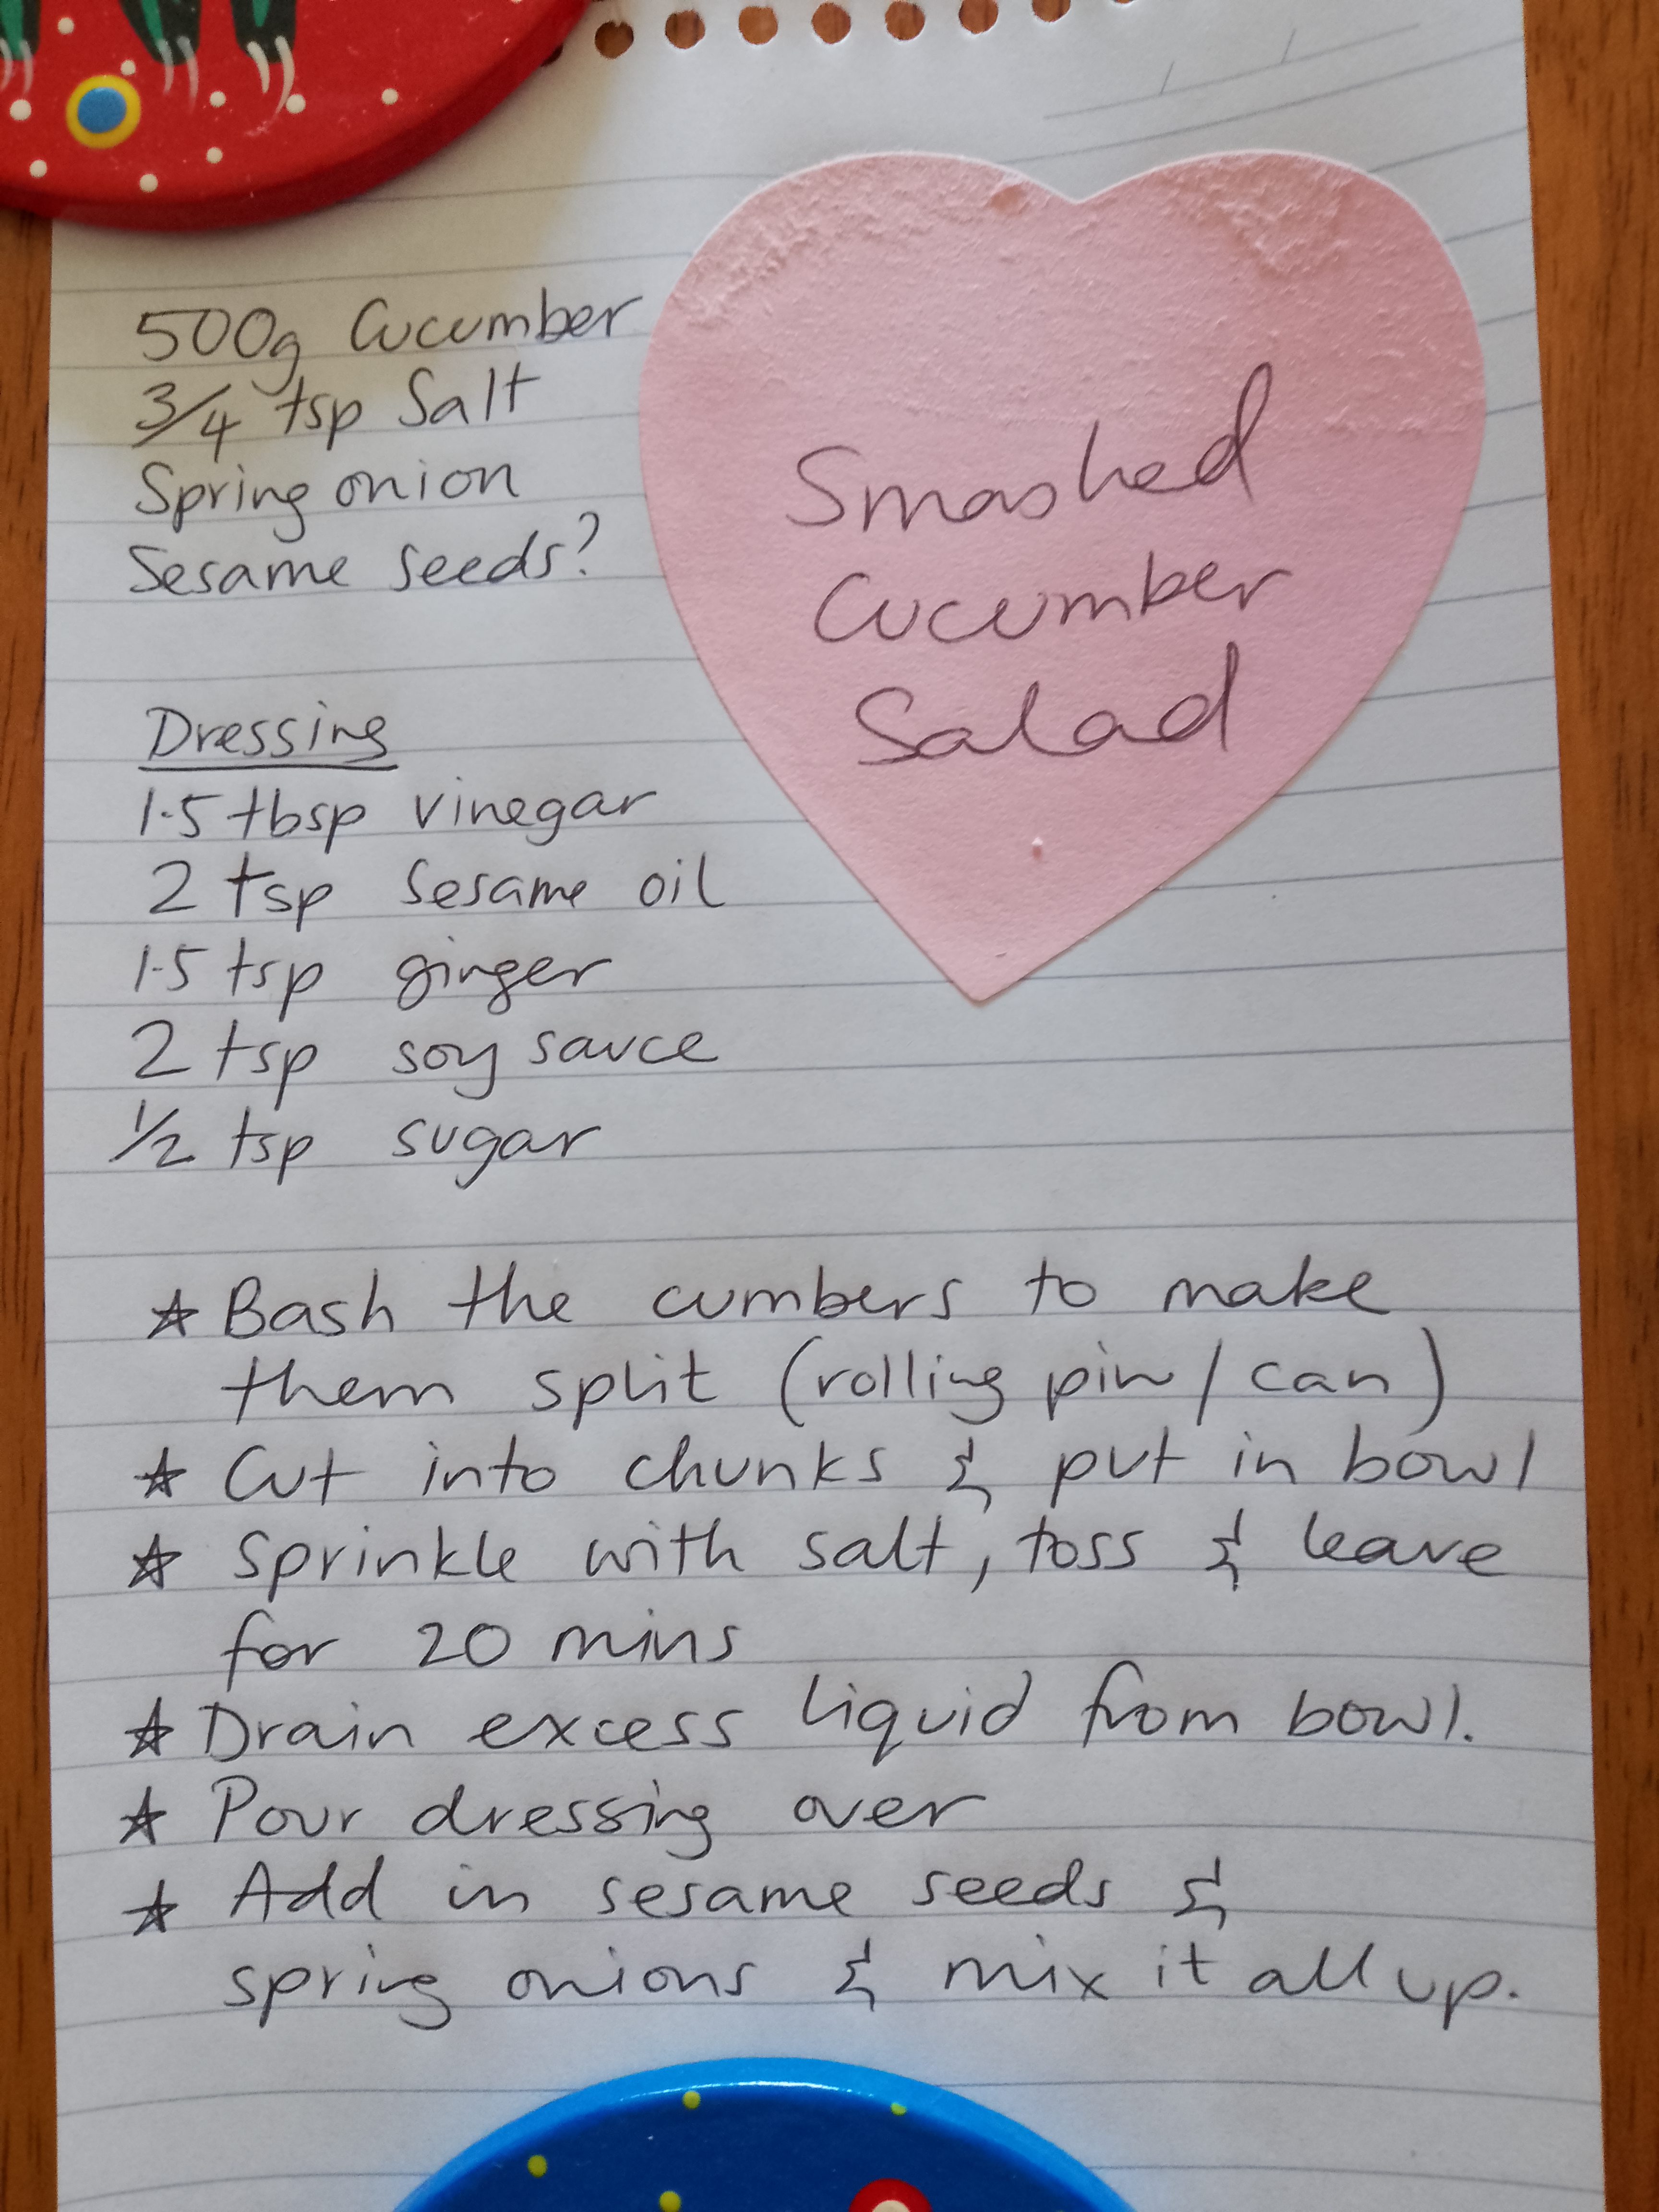 500g Cucumber
3/4 tsp Salt
Spring onion
Sesame seeds?
Smashed
Cucumber
Salad
Dressing
1.5 tbsp vinegar
2 tsp sesame oil
1.5 tsp ginger
2 tsp soy sauce
1/2 tsp sugar
☆ Bash the cumbers to make
them split (rolling pin / can)
☆ Cut into chunks & put in bowl
☆ Sprinkle with salt, toss & leave
for 20 mins
☆ Drain excess liquid from bowl.
☆ Pour dressing over
☆ Add in sesame seeds &
spring onions & mix it all up.